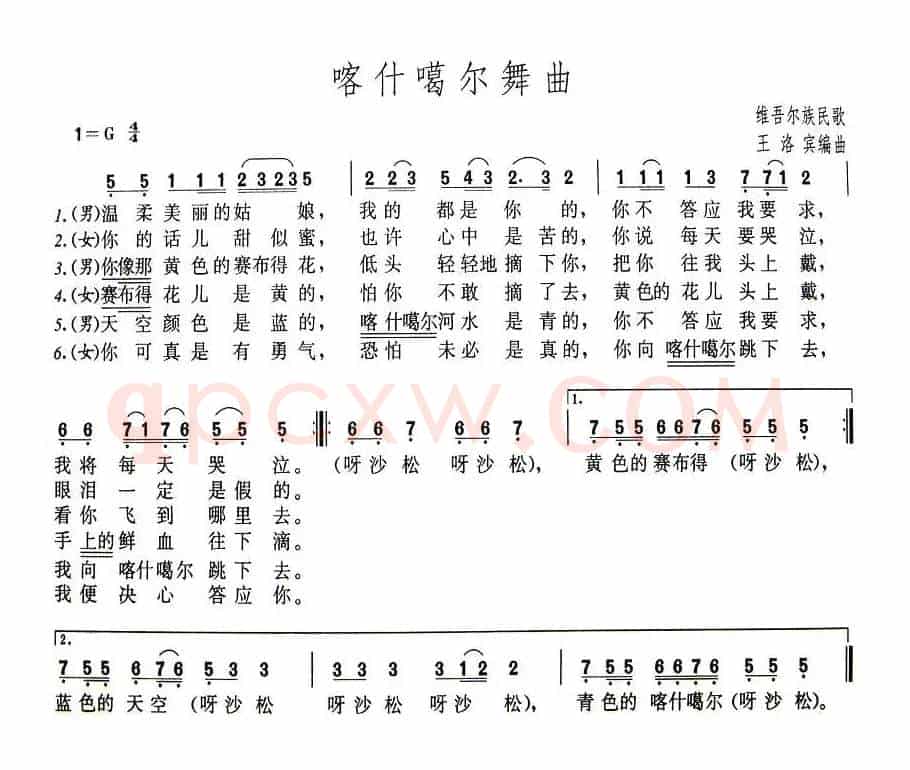 喀什噶尔舞曲
维吾尔族民歌
1=G 4/4
王洛宾编曲
5 5 1 11 2 3 2 3 5 | 2 23 5 43 2. 3 2 | 1 11 1 3 7 71 2 |
1.(男)温柔美丽的姑娘,我的都是你的,你不答应我要求,
2.(女)你的话儿甜似蜜,也许心中是苦的,你说每天要哭泣,
3.(男)你像那黄色的赛布得花,低头轻轻地摘下你,把你往我头上戴,
4.(女)赛布得花儿是黄的,怕你不敢摘了去,黄色的花儿头上戴,
5.(男)天空颜色是蓝的,喀什噶尔河水是青的,你不答应我要求,
6.(女)你可真是有勇气,恐怕未必是真的,你向喀什噶尔跳下去,
qpcxw.COM
1.
6 6 7176 5 5 5 :||: 6 6 7 6 6 7 | 7 55 6676 5 5 5 :||
我将每天哭泣。(呀沙松呀沙松),黄色的赛布得(呀沙松),
眼泪一定是假的。
看你飞到哪里去。
手上的鲜血往下滴。
我向喀什噶尔跳下去。
我便决心答应你。
2.
7 55 6 76 5 3 3 | 3 3 3 3 12 2 | 7 55 6676 5 5 5 :||
蓝色的天空(呀沙松呀沙松呀沙松),青色的喀什噶尔(呀沙松)。